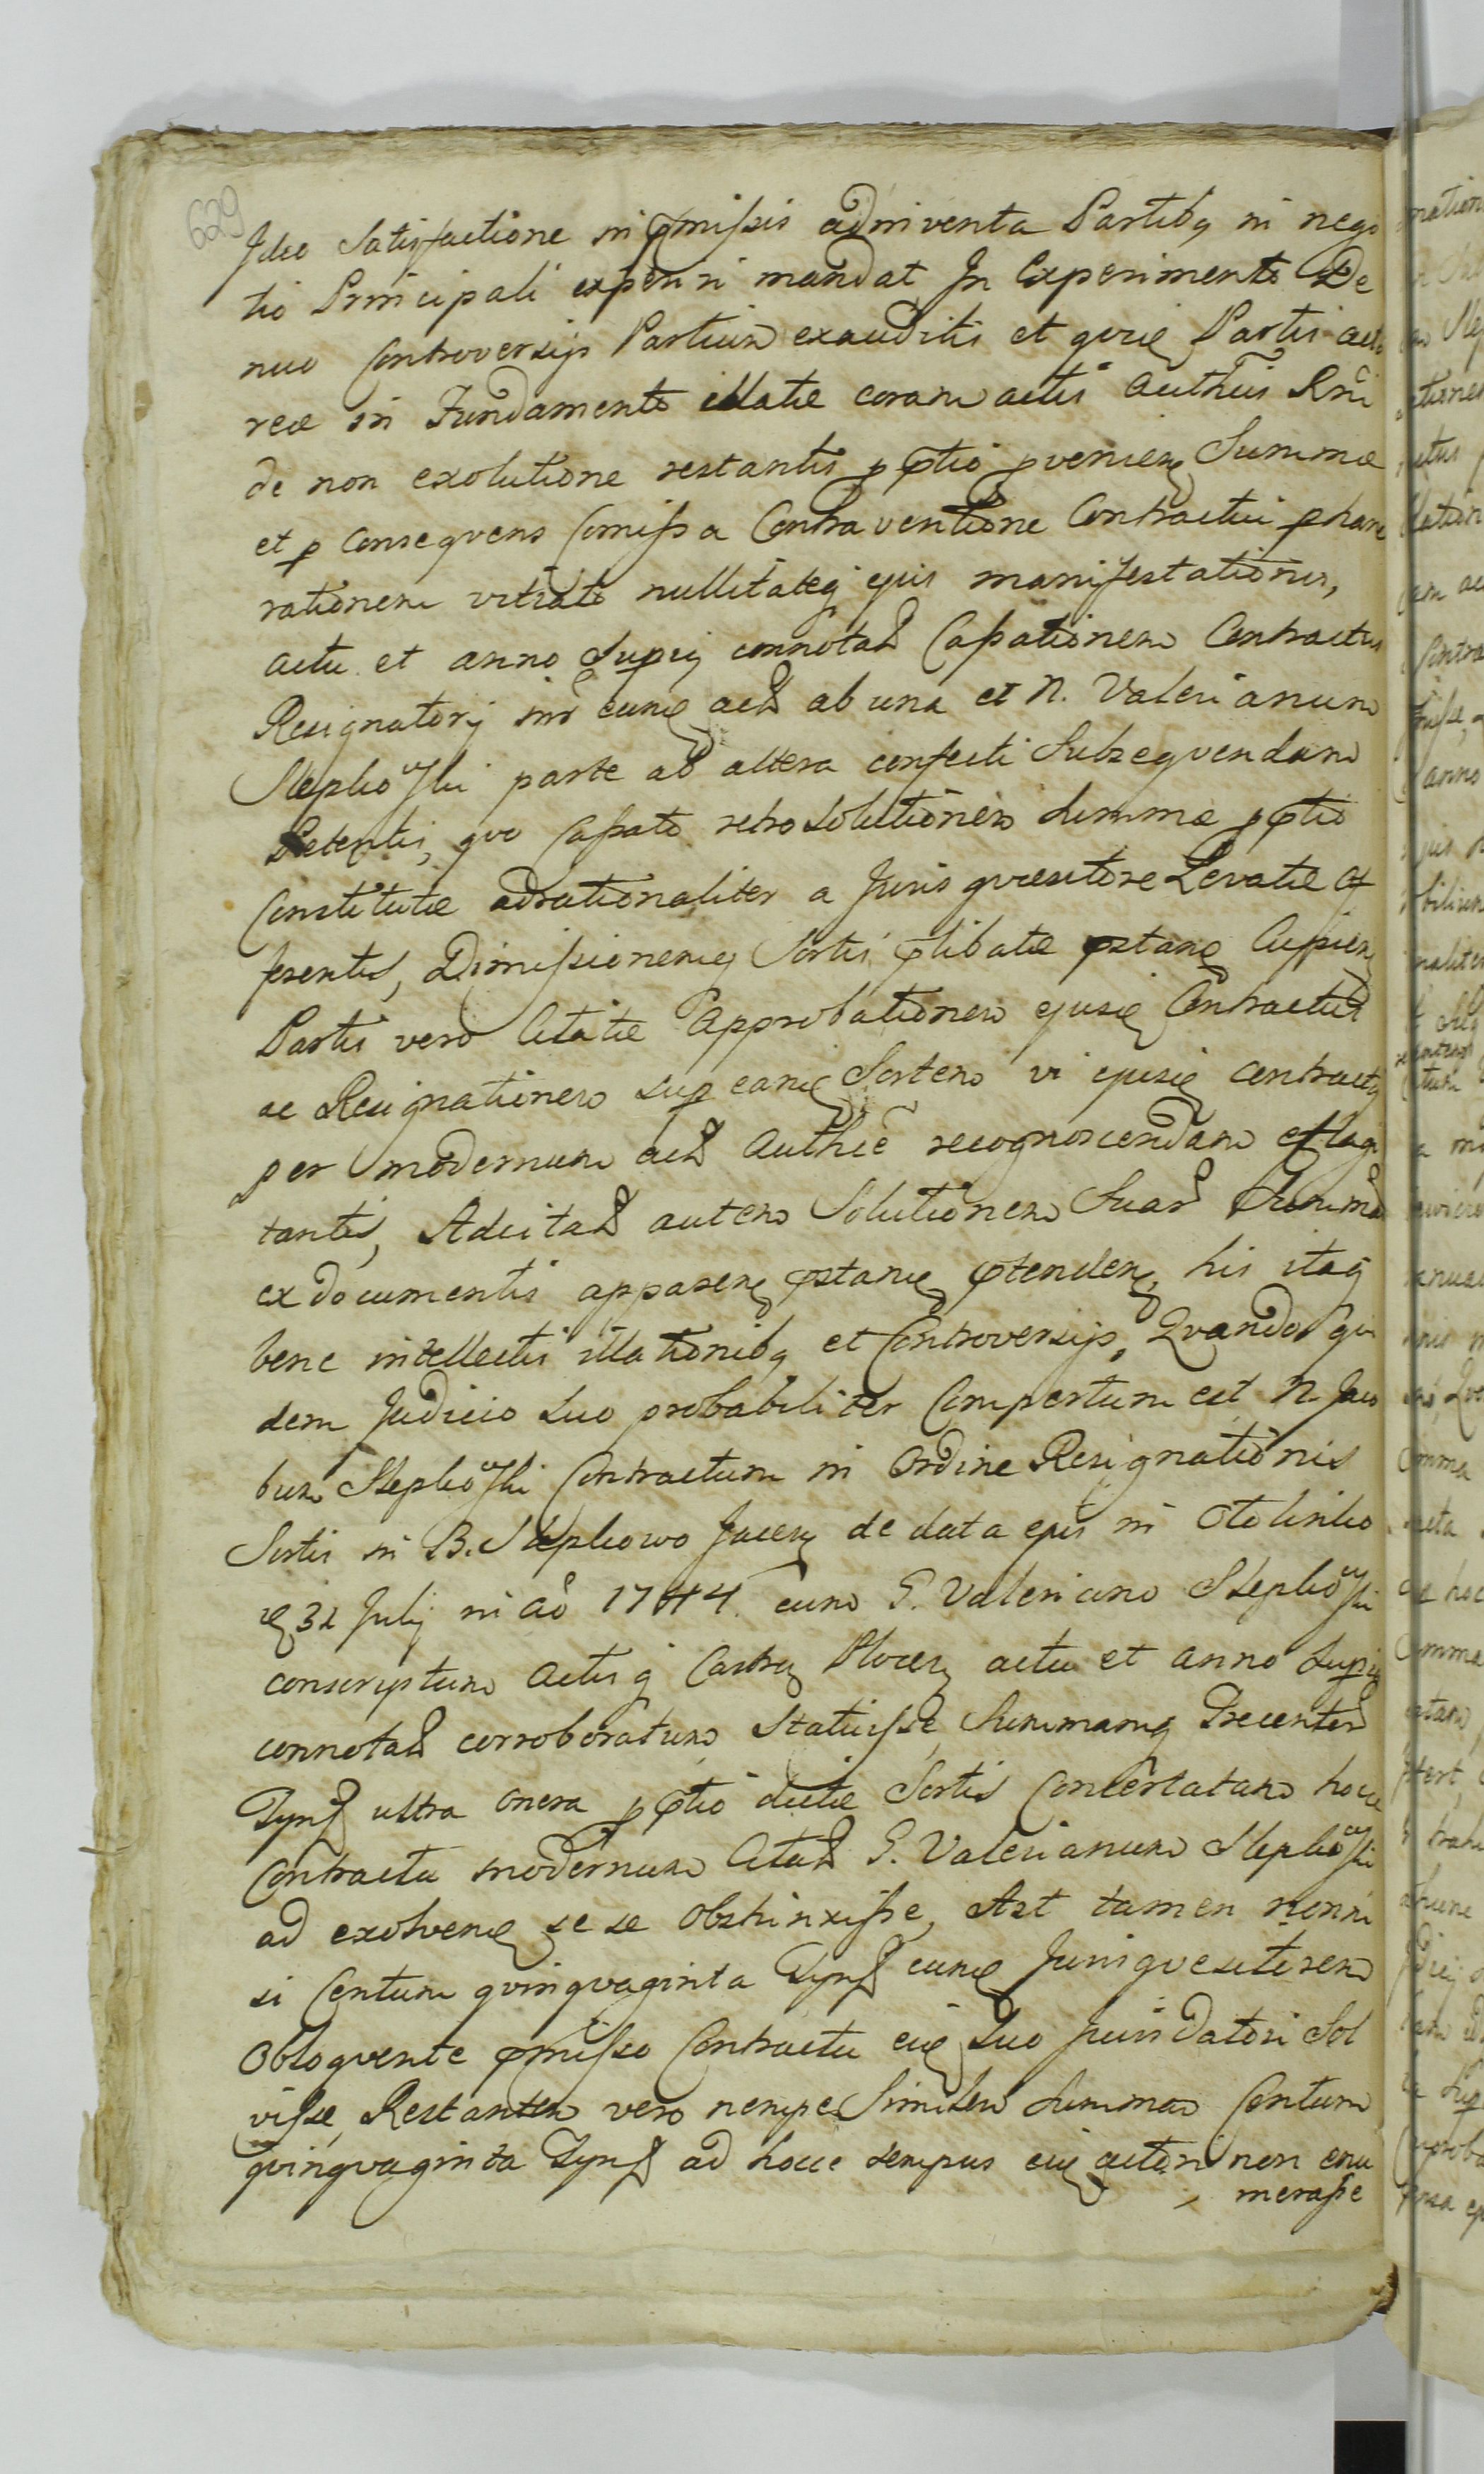 629
Ideo Satisfactione in pmissis adinventa Partibq in nego
tio Principali experiri mandat In Experimento De
nuo Controversijs Partium exauditis et qvie Partis acto
reæ in Fundamento illatæ coram actis Authcis Rni
de non exolutione restantis p ptio pvenien Summæ
et p conseqvens Comissa Contraventione Contractui p hanc
rationem vitiato nullitateq ejus manifestationis,
actu et anno Supis connotat Cassationem Contractus
Resignatorij inr eund act ab una et N. Valerianum
Slepkowski parte ab altera confecti Subseqvendam
Petentis, qvo Cassato retrosolutionem Summæ p ptio
Constitutæ adrationaliter a Juris qvæsitore Levatæ of
ferentis, Dimissionemq Sortis plibatæ pstand Cupien
Partis vero Citatæ Approbationem ejusd Contractus
ac Resignationem sup eand Sortem vi ejusd contractus
per modernum act Authce recognoscendam efflagi
tantis, Adcitat autem Solutionem Suar Summar
ex documentis apparen pstand ptenden, his itaq
bene intellectis illationibq et Controversijs, Qvando qvi
dem Judicio Suo probabiliter Compertum est N. Jaco
bum Slepkowski Contractum in Ordine Resignationis
Sortis in B. Slepkowo Jacen de data ejus in Otolinko
d 31 Julij in ao 1744 cum G. Valeriano Slepkowski
conscriptum actisq Castren Plocen actu et anno Supis
connotat corroboratum, Statuisse, Summamq Trecentor
Tynf ultra onera p ptio dictæ Sortis Concertatam hocce
Contractu modernum Citat G. Valerianum Slepkowski
ad exolvend sese Obstrinxisse, Ast tamen nonni
si Centum qvinqvaginta Tynf eund Jurisqvesitorem
Obloqvente pmisso Contractu eid Suo Jurisdatori Sol
visse, Restantem vero nempe Similem Summam Centum
qvinqvaginta Tynf ad hocce tempus eid actori non enu
merasse